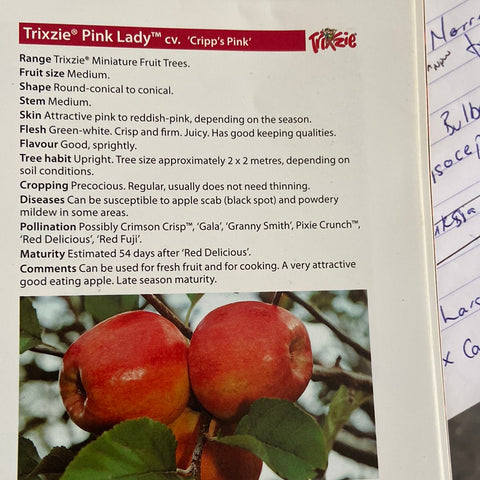 Trixzie® Pink Lady™ cv. 'Cripp's Pink'
Trixzie
Range Trixzie® Miniature Fruit Trees.
Fruit size Medium.
Shape Round-conical to conical.
Stem Medium.
Skin Attractive pink to reddish-pink, depending on the season.
Flesh Green-white. Crisp and firm. Juicy. Has good keeping qualities.
Flavour Good, sprightly.
Tree habit Upright. Tree size approximately 2 x 2 metres, depending on
soil conditions.
Cropping Precocious. Regular, usually does not need thinning.
Diseases Can be susceptible to apple scab (black spot) and powdery
mildew in some areas.
Pollination Possibly Crimson Crisp™, 'Gala', 'Granny Smith', Pixie Crunch™,
'Red Delicious', 'Red Fuji'.
Maturity Estimated 54 days after 'Red Delicious'.
Comments Can be used for fresh fruit and for cooking. A very attractive
good eating apple. Late season maturity.